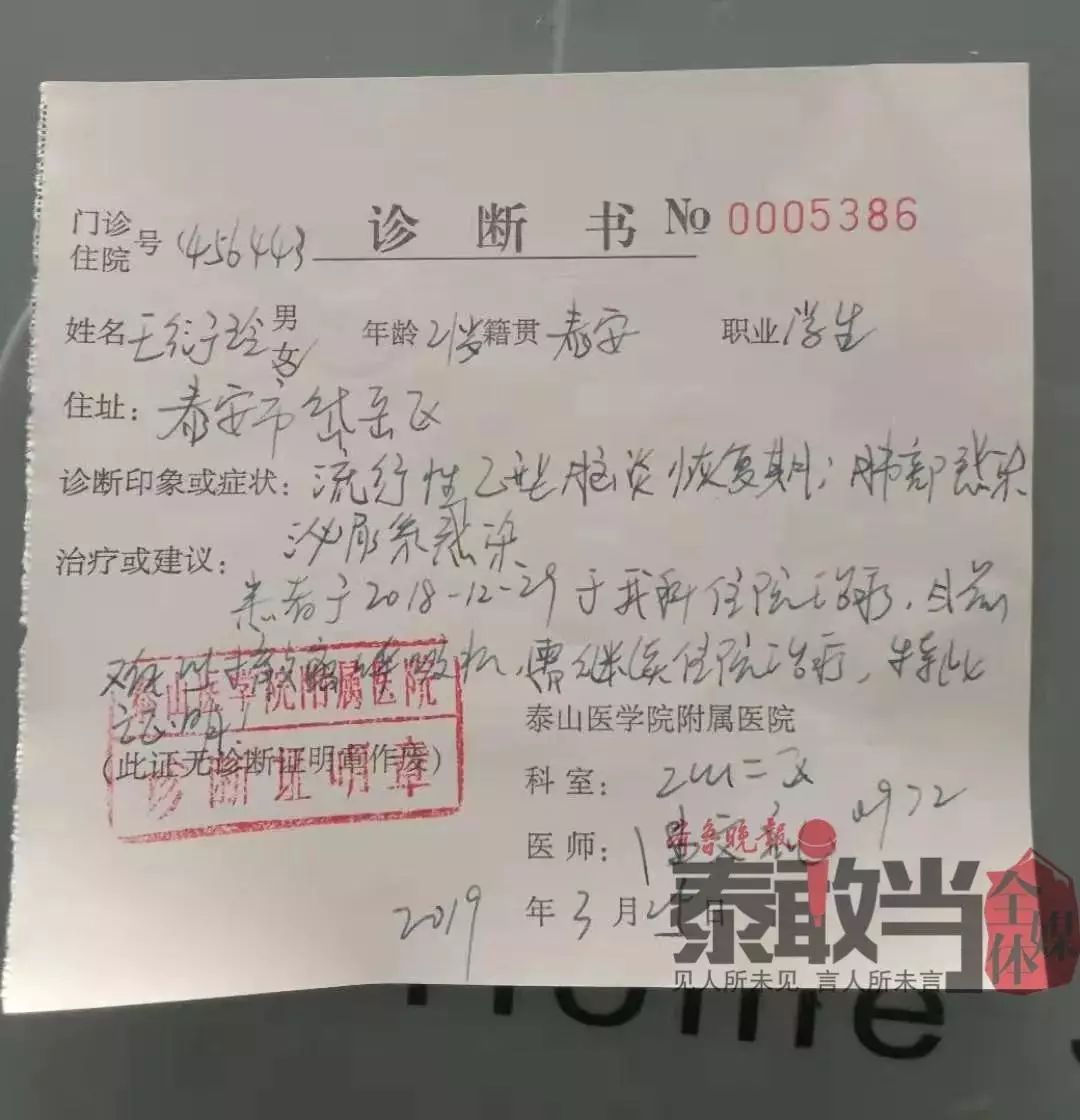 门诊
住院 号 1456443 诊断书 № 0005386
姓名 王衍玲 男 女 年龄 21岁 籍贯 泰安 职业 学生
住址: 泰安市岱岳区
诊断印象或症状: 流行性乙型脑炎恢复期; 肺部感染
泌尿系感染
治疗或建议:
患者于2018-12-29于我科住院治疗,目前
难以撤离呼吸机,需继续住院治疗,特此
证明!
泰山医学院附属医院
诊断证明章
泰山医学院附属医院
(此证无诊断证明章作废)
科室: ICU二区
医师:
2019 年 3 月 25 日
齐鲁晚报
泰敢当
全媒体
见人所未见 言人所未言
Home